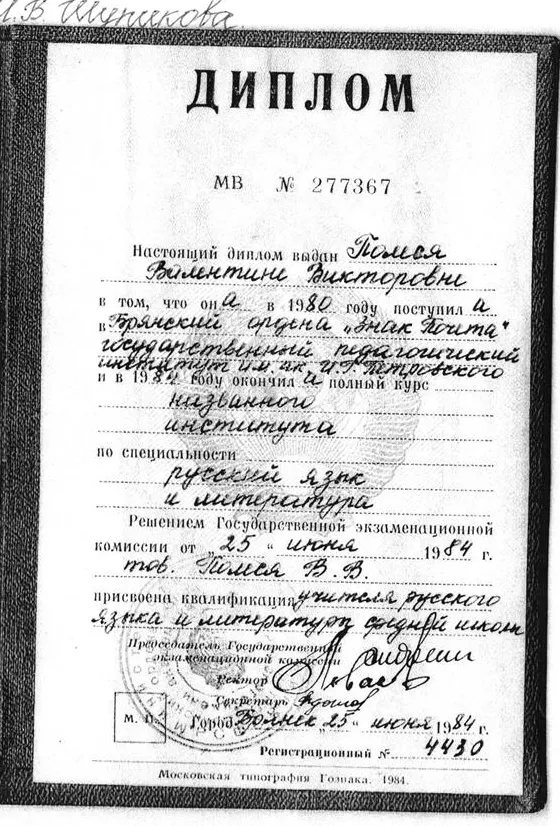 И.В. Шупикова.
ДИПЛОМ
МВ № 277367
Настоящий диплом выдан Помеся
Валентине Викторовне
в том, что она в 1980 году поступила
в Брянский ордена „Знак Почта"
государственный педагогический
институт им. ак. И Г Петровского
и в 1984 году окончила полный курс
названного
института
по специальности
русский язык
и литература
Решением Государственной экзаменационной
комиссии от „25 " июня 1984 г.
тов. Помеся В. В.
присвоена квалификация учителя русского
языка и литературы средней школы
Председатель Государственной
экзаменационной комиссии
Ректор
Секретарь
М. П.
Город Брянск „25 " июня 1984 г.
Регистрационный № 4430
Московская типография Гознака. 1984.